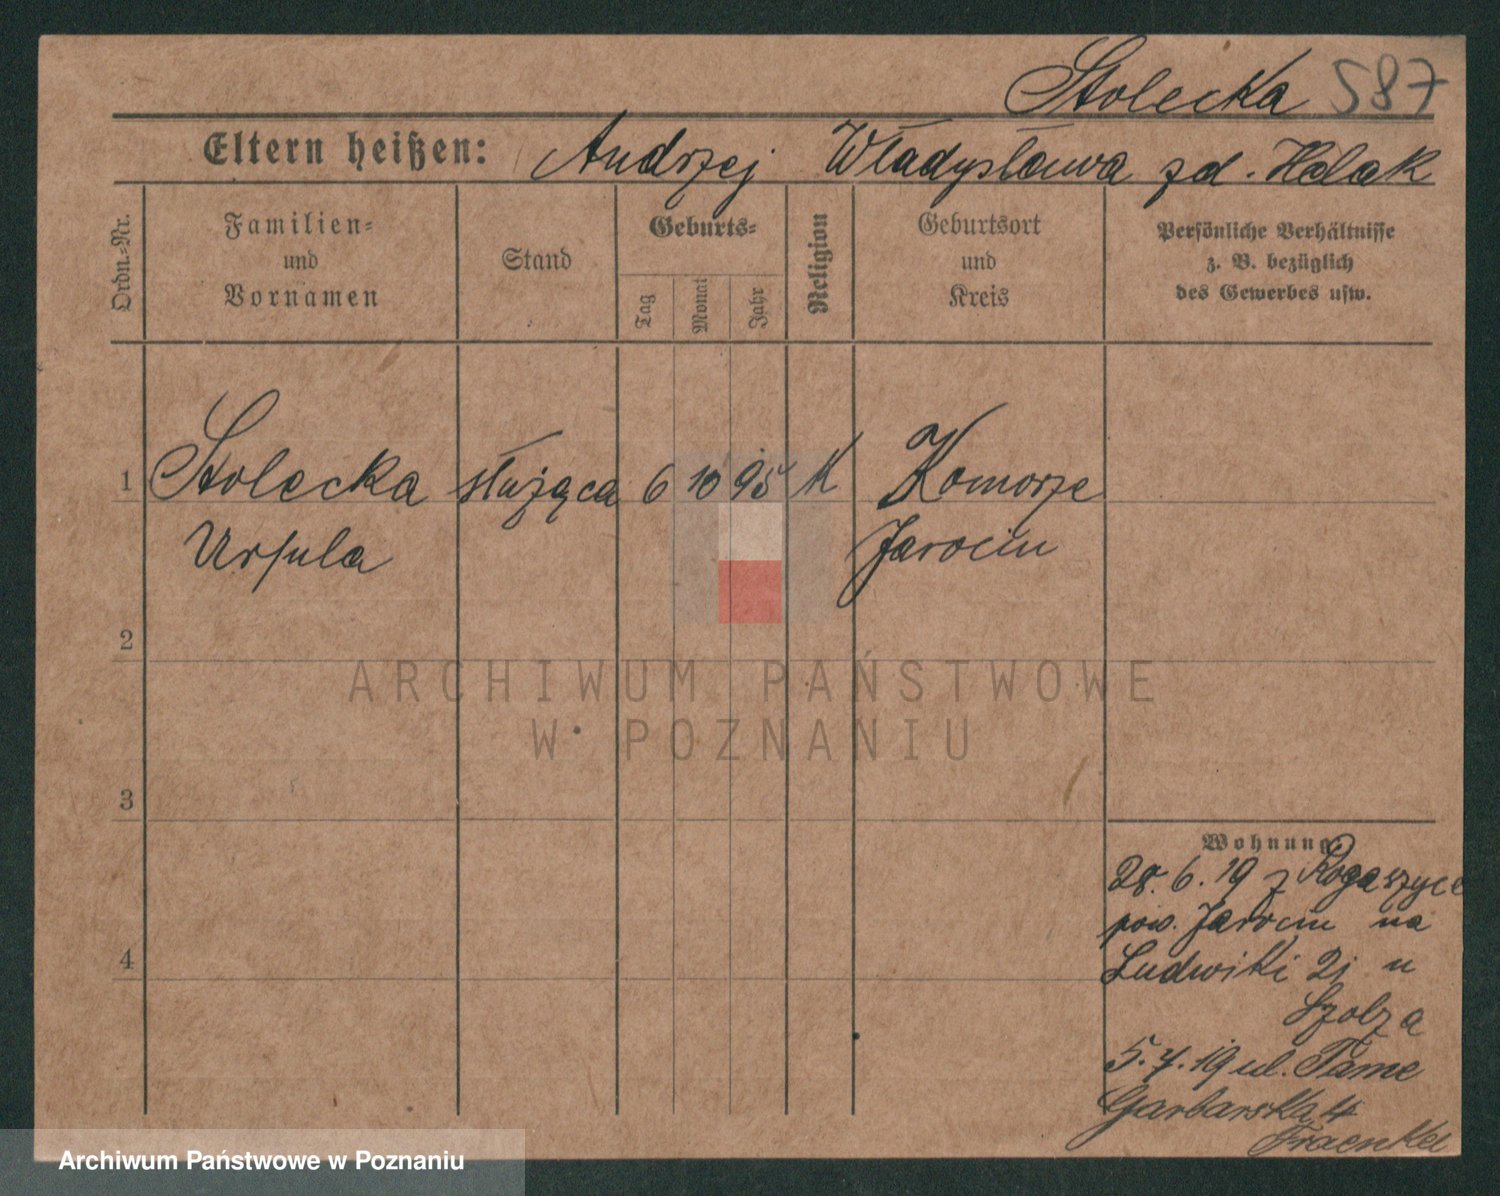 Stolecka 587
Eltern heißen: Andrzej Władysława zd. Helak
Ordn.-Nr.
Familien- und Vornamen
Stand
Geburts-
Tag
Monat
Jahr
Religion
Geburtsort und Kreis
Persönliche Verhältnisse
z. B. bezüglich
des Gewerbes usw.
1 Stolecka służąca 6 10 95 K Komorze
Ursula Jarocin
2
3
4
Wohnung
28.6.19 z Rogaszyce
pow. Jarocin na
Ludwiki 2j u
Szolza
5.7.19 ul. Tame
Garbarska 4
Fraenkel
ARCHIWUM PAŃSTWOWE
W POZNANIU
Archiwum Państwowe w Poznaniu